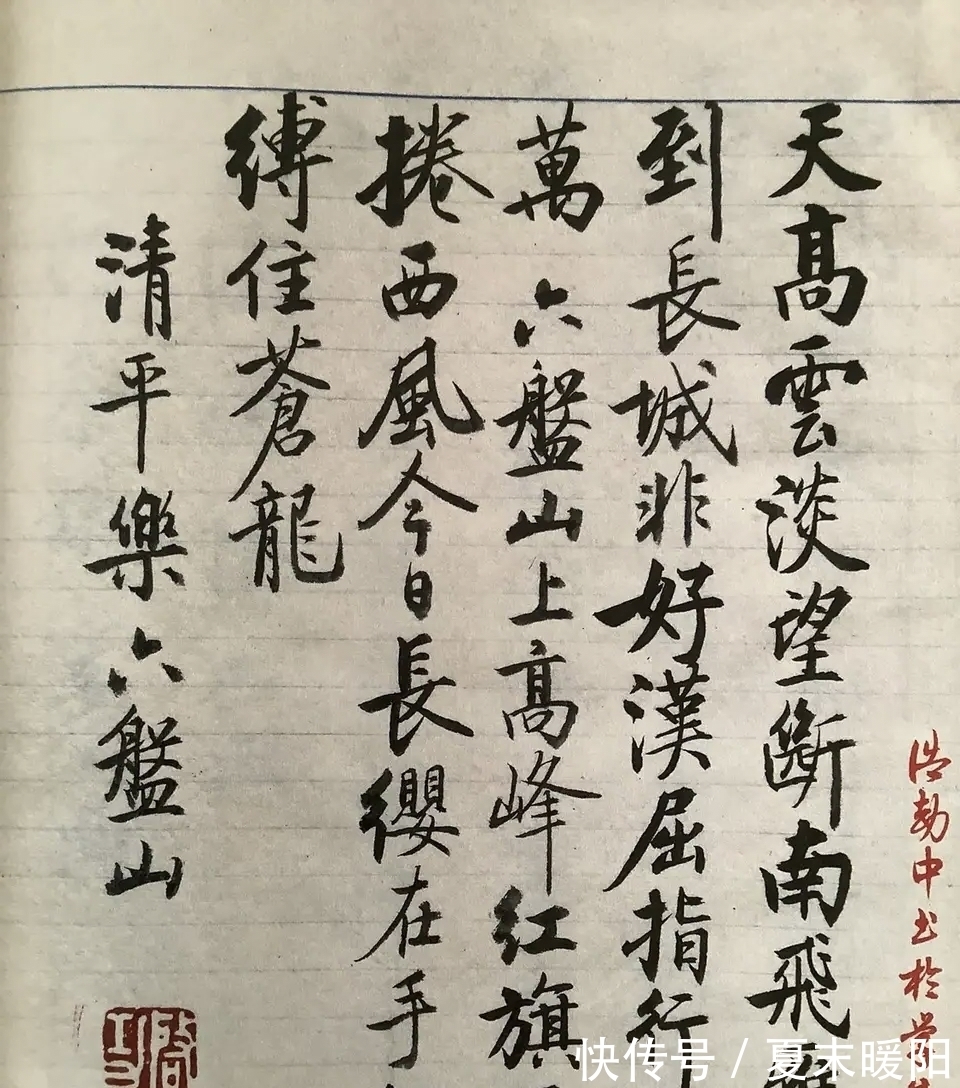 天高雲淡望斷南飛
到長城非好漢屈指行
萬 六盤山上高峰紅旗
捲西風今日長纓在手
縛住蒼龍
清平樂六盤山
中書於
快传号 / 夏末暖阳